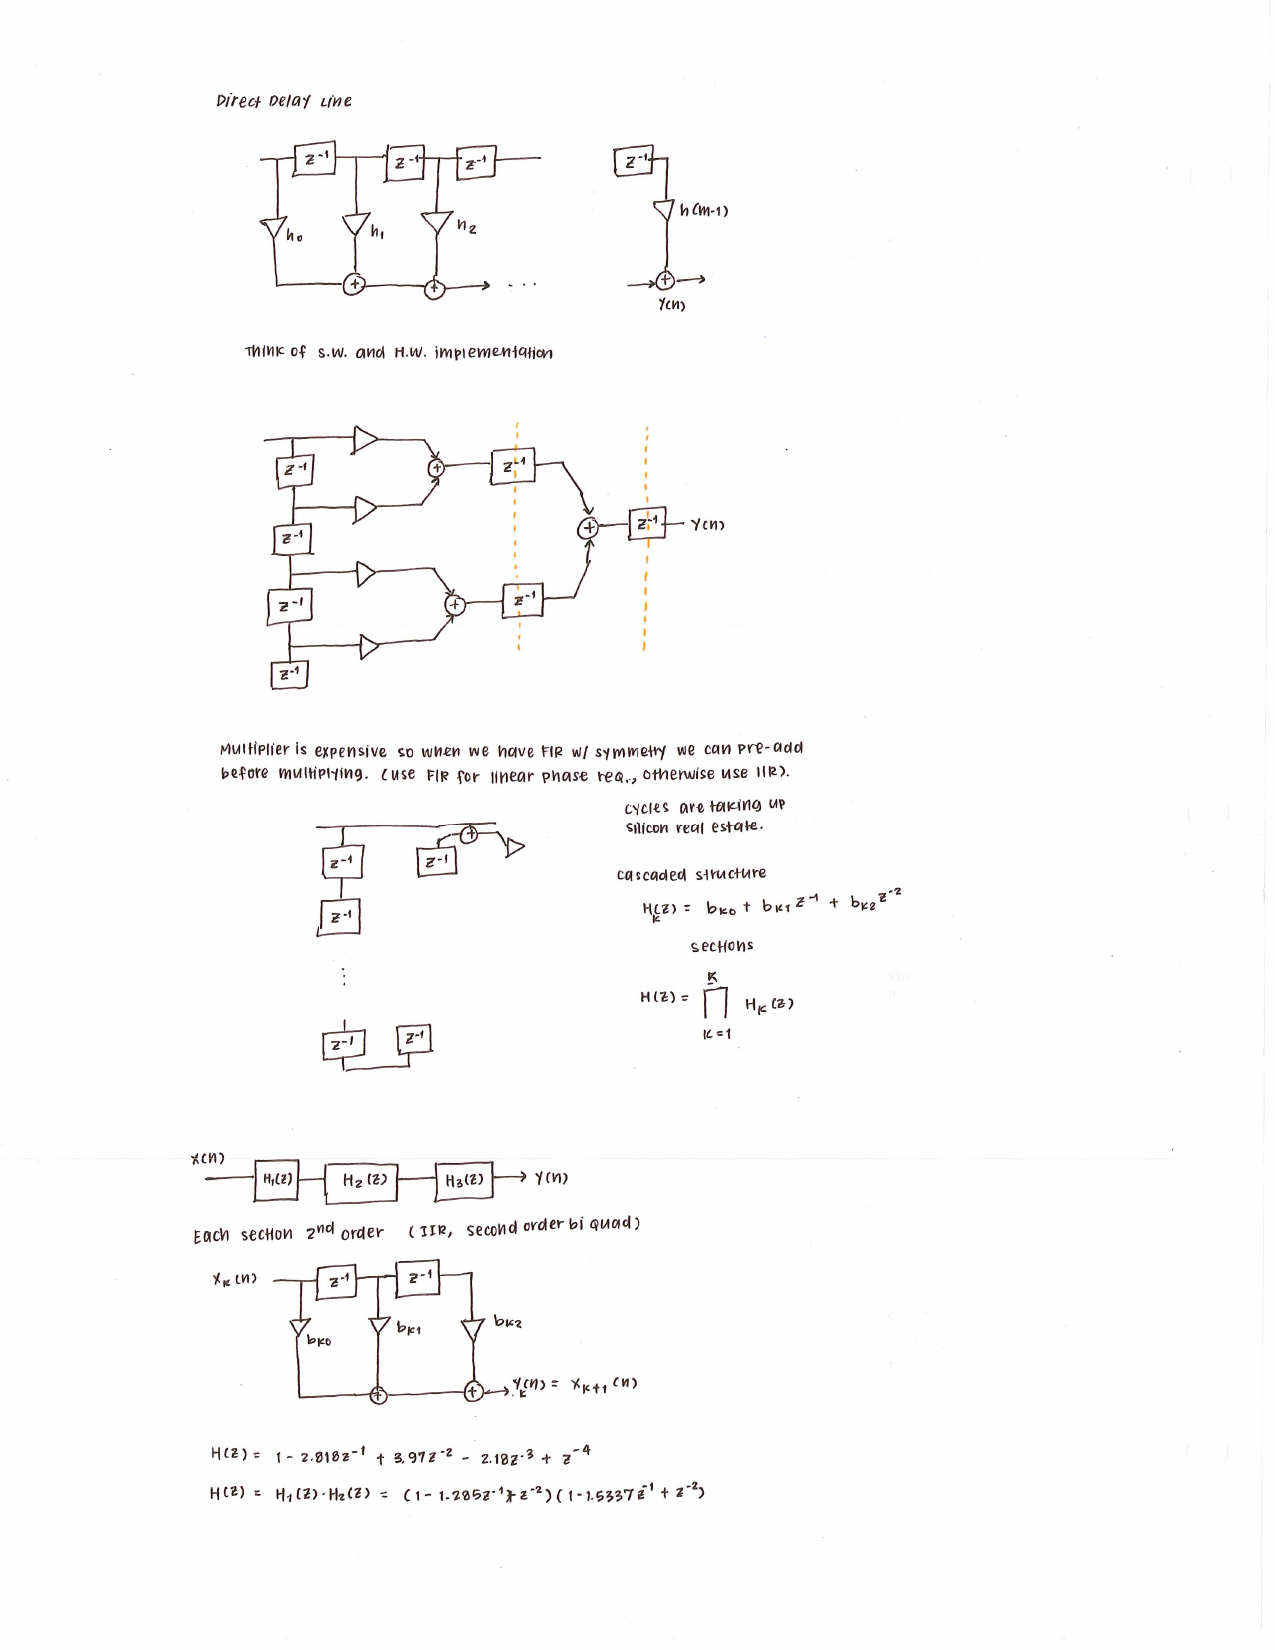 Direct Delay Line
z⁻¹ z⁻¹ z⁻¹ z⁻¹
h₀ h₁ h₂ h(m-1)
+ + ... +
Y(n)
Think of S.W. and H.W. implementation
z⁻¹ + z⁻¹
z⁻¹ + z⁻¹ Y(n)
z⁻¹ + z⁻¹
z⁻¹
Multiplier is expensive so when we have FIR w/ symmetry we can pre-add
before multiplying. (use FIR for linear phase req., otherwise use IIR).
cycles are taking up
silicon real estate.
+
z⁻¹ z⁻¹
cascaded structure
z⁻¹
Hₖ(z) = bₖ₀ + bₖ₁ z⁻¹ + bₖ₂ z⁻²
sections
⋮
K
H(z) = ∏ Hₖ(z)
k=1
z⁻¹ z⁻¹
X(n)
H₁(z) H₂(z) H₃(z) Y(n)
Each section 2nd order (IIR, second order bi quad)
Xₖ(n) z⁻¹ z⁻¹
bₖ₀ bₖ₁ bₖ₂
+ + Yₖ(n) = Xₖ₊₁(n)
H(z) = 1 - 2.818z⁻¹ + 3.97z⁻² - 2.18z⁻³ + z⁻⁴
H(z) = H₁(z)·H₂(z) = (1 - 1.285z⁻¹+ z⁻²)(1 - 1.5337z⁻¹ + z⁻²)